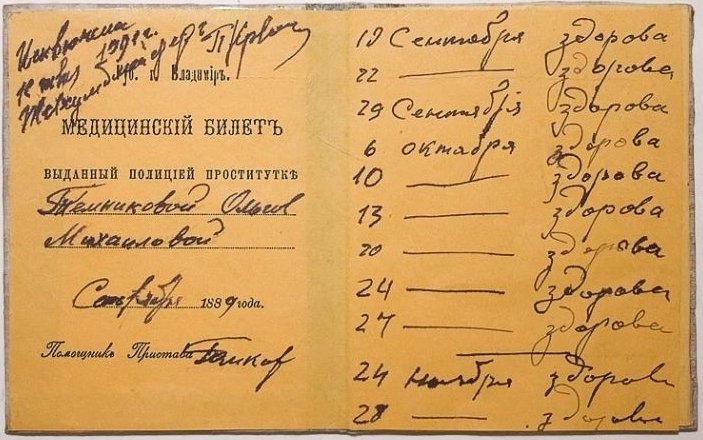 1891 г.
Губ. г. Владиміръ.
МЕДИЦИНСКІЙ БИЛЕТЪ
ВЫДАННЫЙ ПОЛИЦІЕЙ ПРОСТИТУТКѢ
Темниковой Ольге
Михаиловой
Сентября 1889 года.
Помощникъ Пристава
19 Сентября здорова
22 — здорова
29 Сентября здорова
6 октября здорова
10 — здорова
13 — здорова
20 — здорова
24 — здорова
27 — здорова
24 ноября здорова
28 — здорова